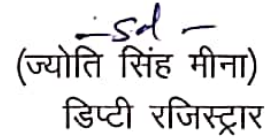 -sd-
(ज्योति सिंह मीना)
डिप्टी रजिस्ट्रार